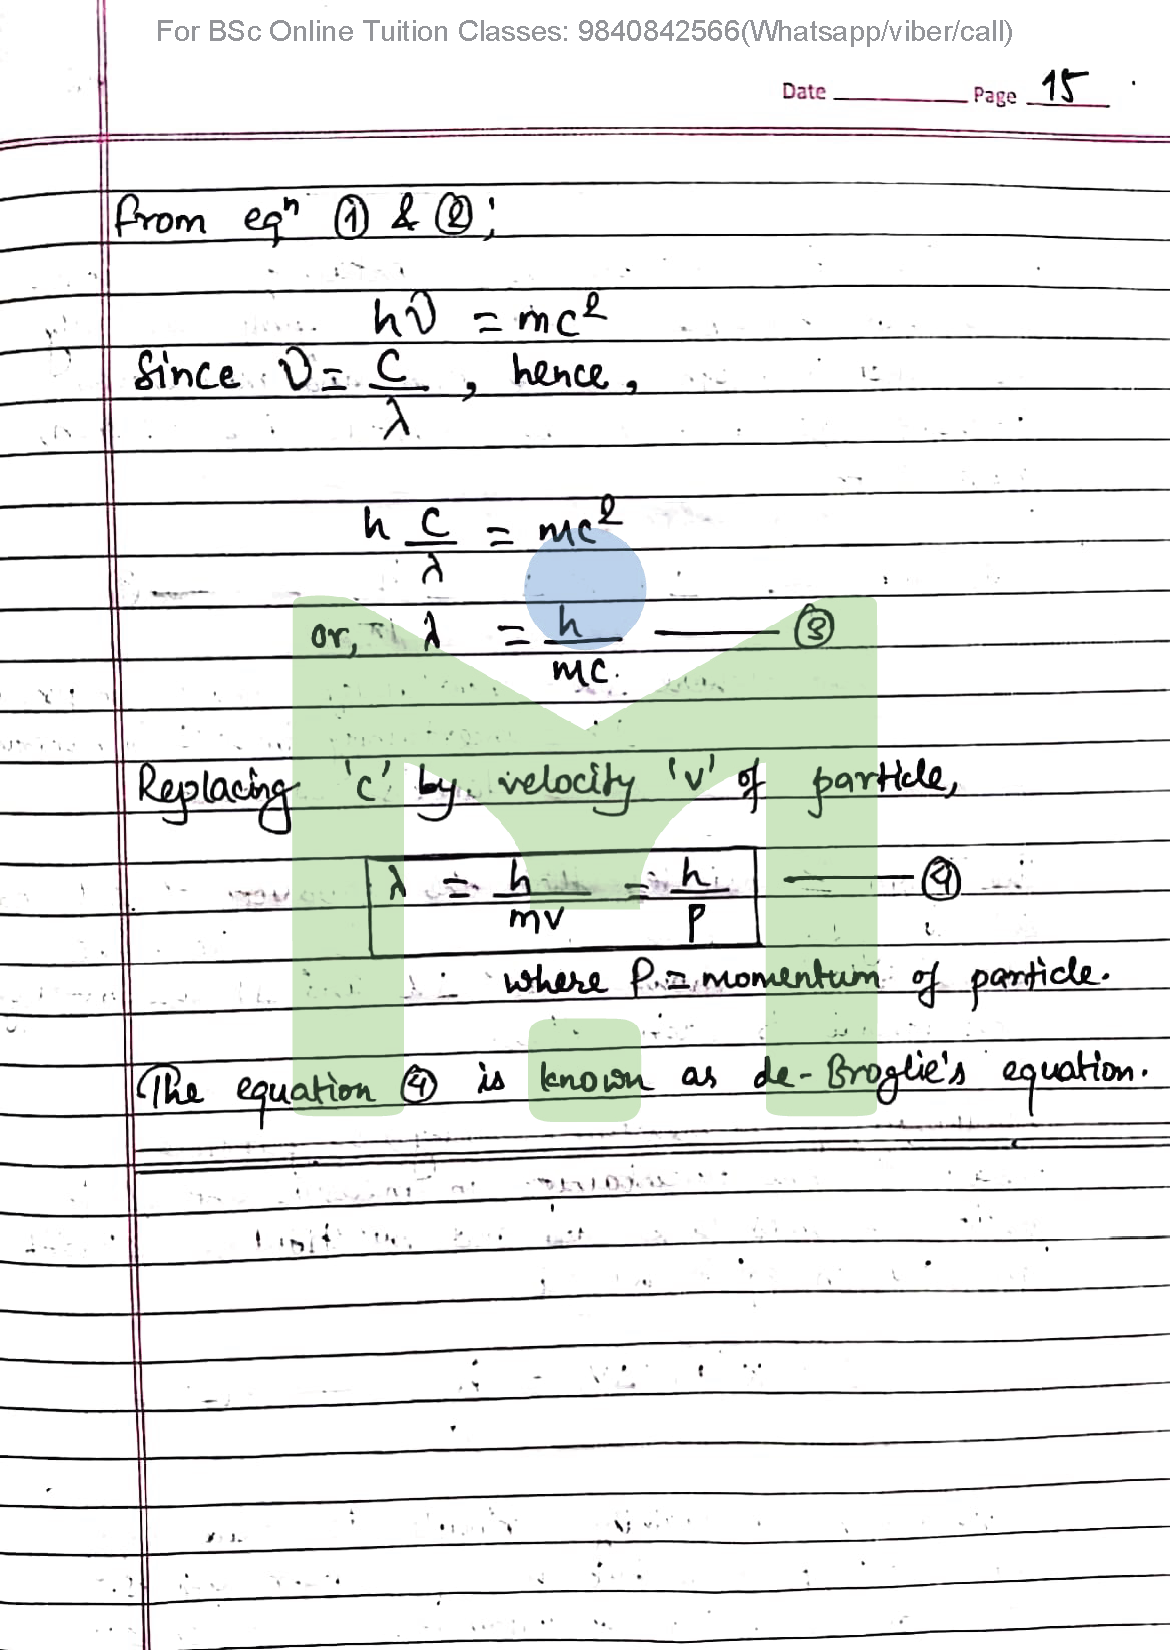 For BSc Online Tuition Classes: 9840842566(Whatsapp/viber/call)
Date Page 15
from eqⁿ ① & ②;
hν = mc²
Since ν = c/λ, hence,
h c/λ = mc²
or, λ = h/mc ——— ③
Replacing 'c' by velocity 'v' of particle,
λ = h/mv = h/p ——— ④
where P = momentum of particle.
The equation ④ is known as de-Broglie's equation.